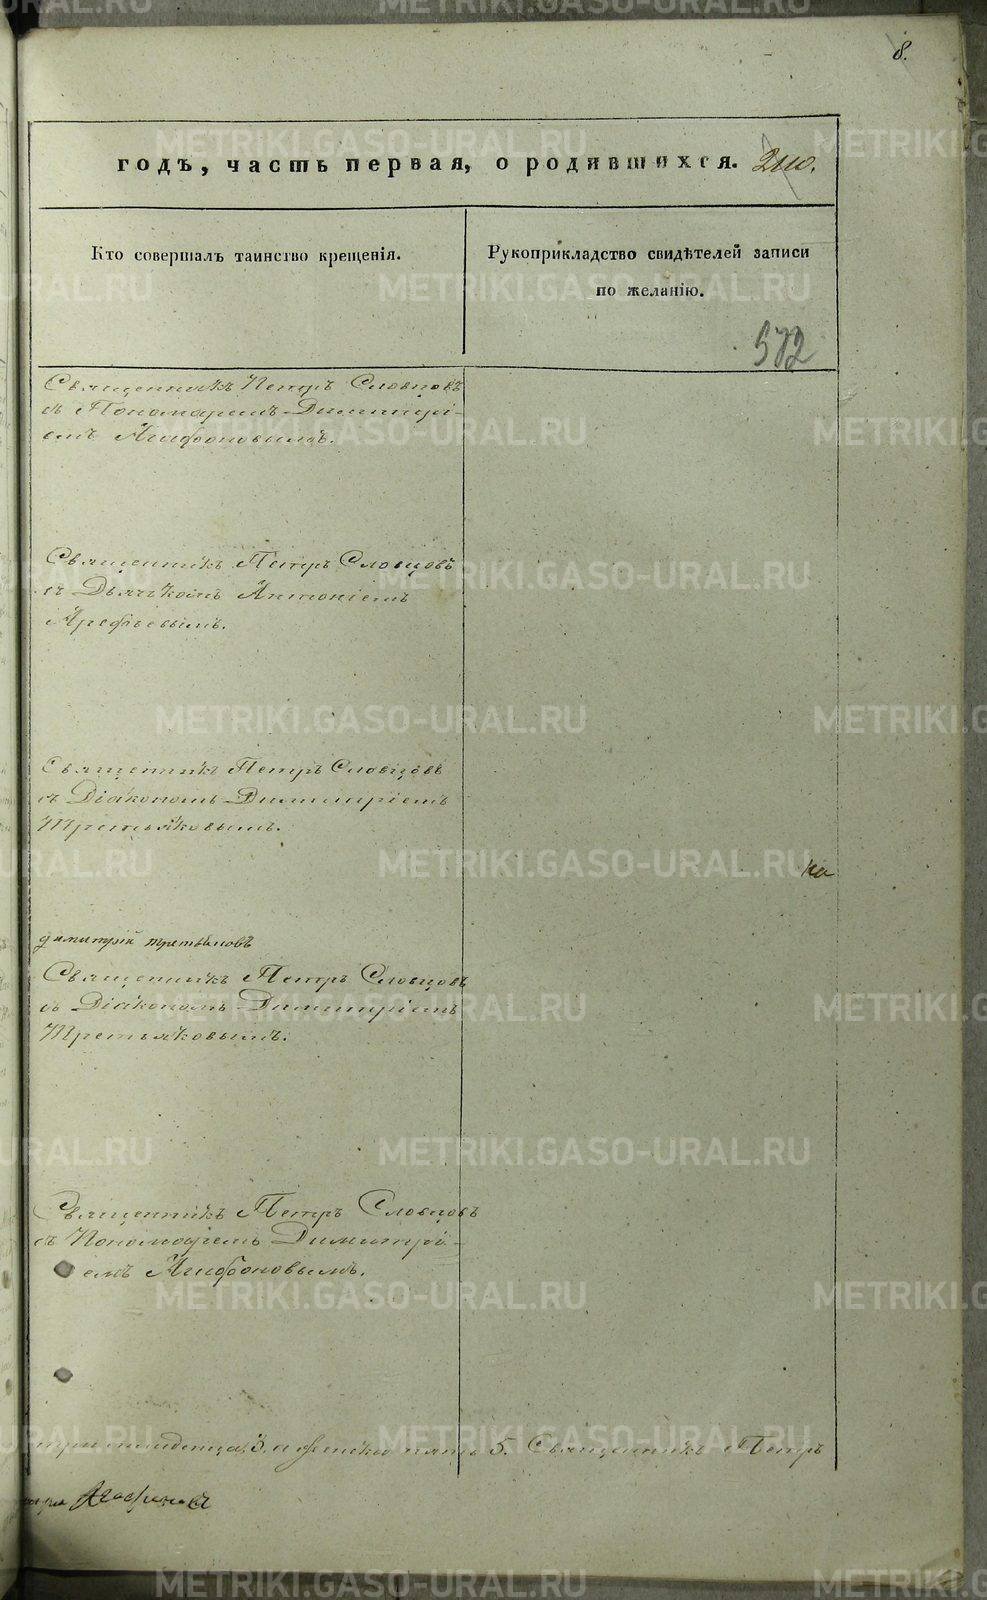 8.
годъ, часть первая, о родившихся. 210.
Кто совершалъ таинство крещенія.
Рукоприкладство свидѣтелей записи
по желанію.
572
Священникъ Петръ Словцовъ
съ Пономаремъ Димитрі-
емъ Агафоновымъ.
Священникъ Петръ Словцовъ
съ Дьячкомъ Антоніемъ
Арефьевымъ.
Священникъ Петръ Словцовъ
съ Діакономъ Димитріемъ
Третьяковымъ.
ка
димитрій третьяковъ
Священникъ Петръ Словцовъ
съ Діакономъ Димитріемъ
Третьяковымъ.
Священникъ Петръ Словцовъ
съ Пономаремъ Димитрі-
емъ Агафоновымъ.
три младенца, 3. а женска пять 5. Священникъ Петръ
Агафоновъ
METRIKI.GASO-URAL.RU